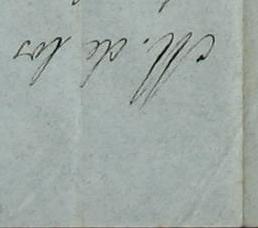 M. de los